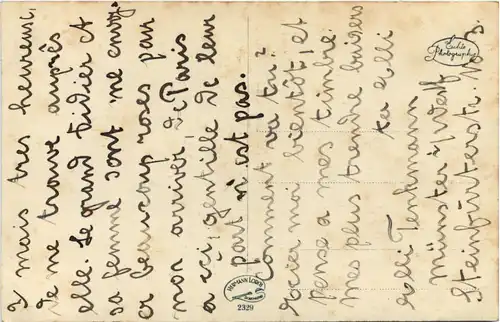 I mais tres heureux,
de me trouve auprès
elle. Le grand Didier et
sa femme sont me envoy-
er beaucoup roses par
mon arriver de Paris
a ici gentille de leur
part n'ist pas.
Comment va tu?
écrier moi bientôt, et
pense a mes timbre.
mes plus tendre baisers
ta Elli
Elli Tenhmann
Münster i/Westf
Steinfurterstr. No 3.
Echte Photographie
HERMANN LORCH
DORTMUND
2329